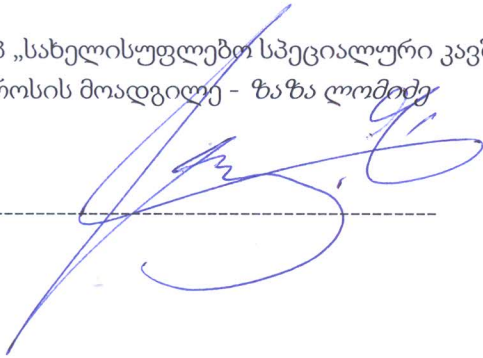 „სახელისუფლებო სპეციალური
მოადგილე - ზაზა ლომიძე